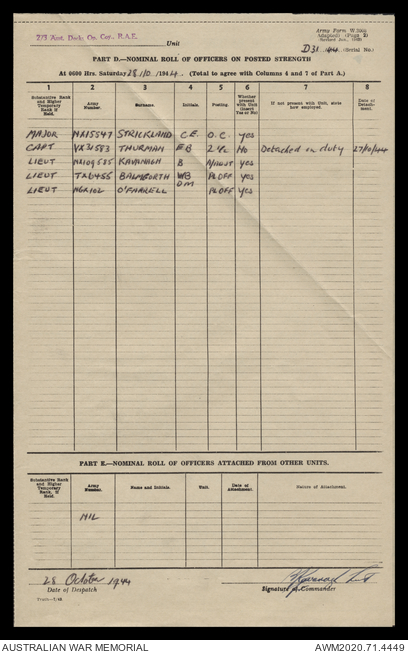 2/3 Aust. Dock. Op. Coy. R.A.E. Unit
Army Form W.3008
D31/44 (Serial No.)
PART D.—NOMINAL ROLL OF OFFICERS ON POSTED STRENGTH
At 0600 Hrs. Saturday 28/10/1944. (Total to agree with Columns 4 and 7 of Part A.)
1 2 3 4 5 6 7 8
Substantive Rank and Higher Temporary Rank if Held. Army Number. Surname. Initials. Posting. Whether present with Unit (Insert Yes or No) If not present with Unit, state how employed. Date of Detachment.
MAJOR NX15547 STRICKLAND C.E. O.C. yes
CAPT VX31583 THURMAN E B 2 i/c No Detached on duty 27/10/44
LIEUT NX109585 KAVANAGH B A/ADJT yes
LIEUT TX6455 BALMFORTH WB PL OFF yes
LIEUT O'FARRELL DM PL OFF yes
PART E.—NOMINAL ROLL OF OFFICERS ATTACHED FROM OTHER UNITS.
Substantive Rank and Higher Temporary Rank, if Held. Army Number. Name and Initials. Unit. Date of Attachment. Nature of Attachment.
NIL
28 October 1944
Date of Despatch
B Kavanagh Lt
Signature of Commander
AUSTRALIAN WAR MEMORIAL AWM2020.71.4449